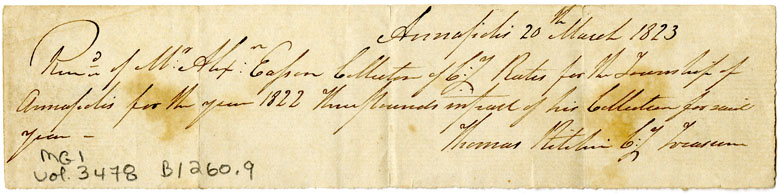 Annapolis 20th March 1823
Rec'd of Mr Alex'r Easson Collector of C:y Rates for the Township of
Annapolis for the year 1822 Three Pounds in part of his Collection for said
year –
Thomas Ritchie C:y Treasurer
MG1
Vol. 3478 B1260.9